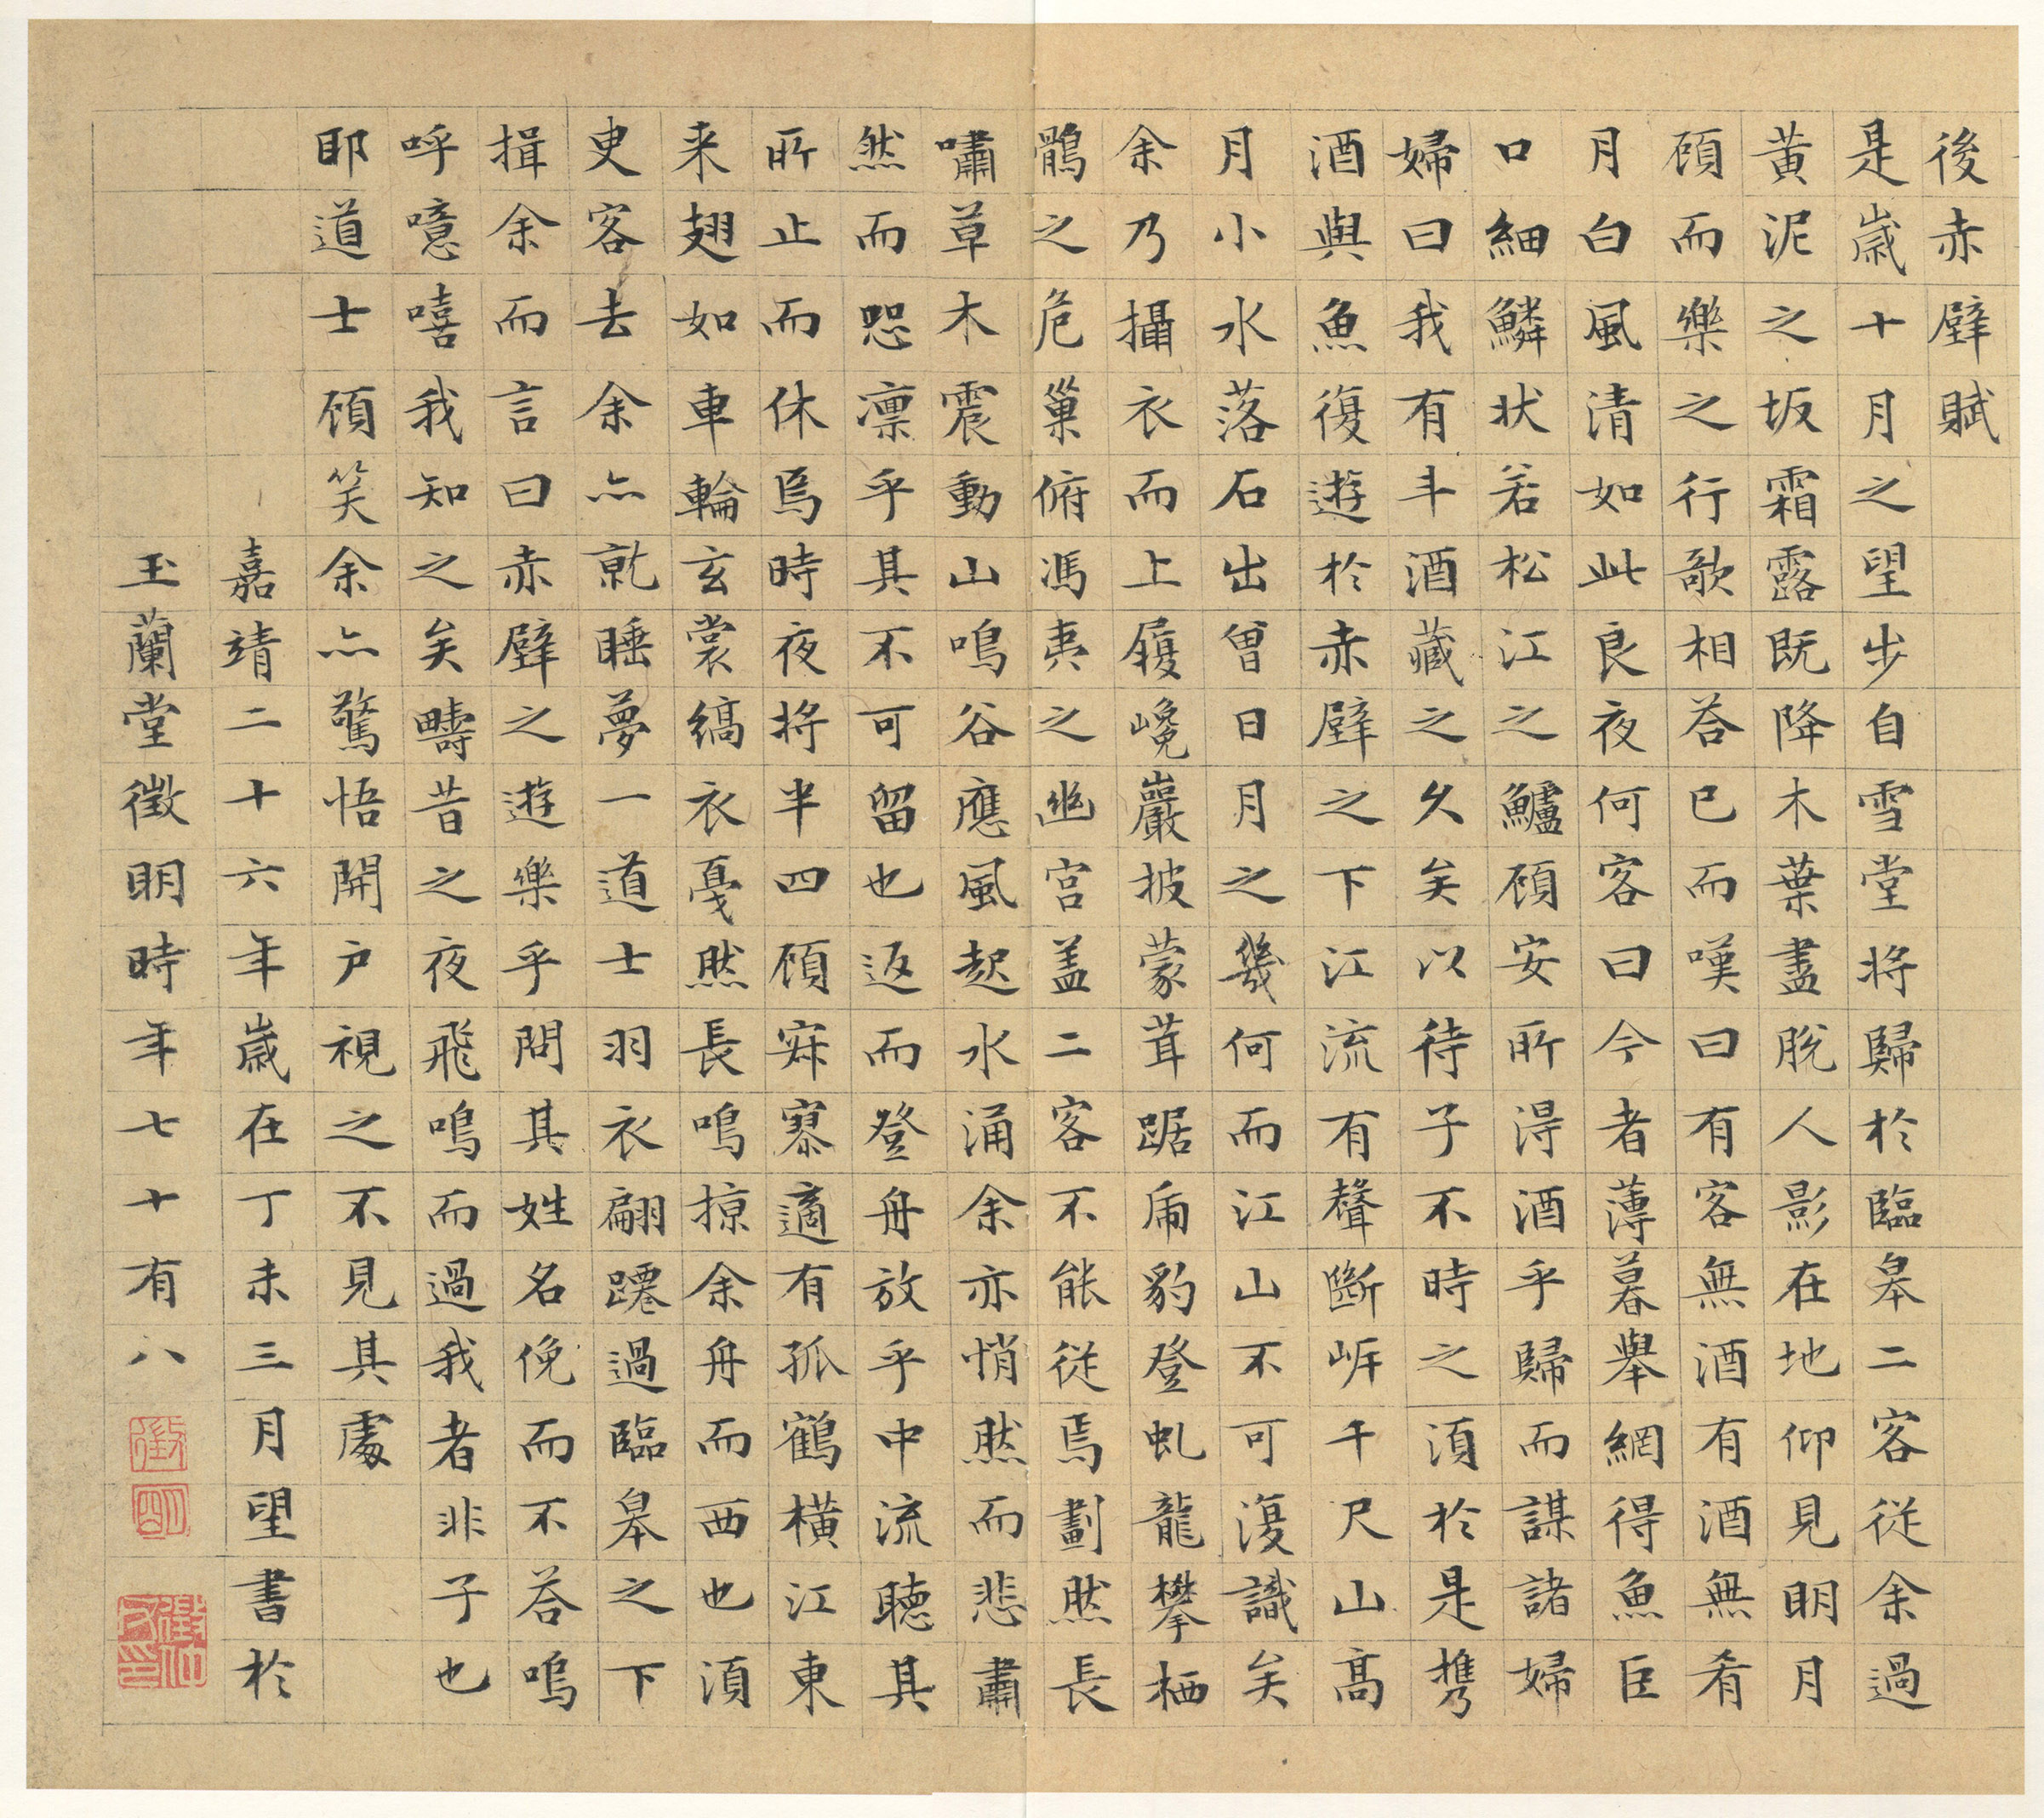 後赤壁賦
是歲十月之望步自雪堂將歸於臨皋二客從余過
黃泥之坂霜露既降木葉盡脫人影在地仰見明月
顧而樂之行歌相答已而嘆曰有客無酒有酒無肴
月白風清如此良夜何客曰今者薄暮舉網得魚巨
口細鱗狀若松江之鱸顧安所得酒乎歸而謀諸婦
婦曰我有斗酒藏之久矣以待子不時之須於是攜
酒與魚復遊於赤壁之下江流有聲斷岸千尺山高
月小水落石出曾日月之幾何而江山不可復識矣
余乃攝衣而上履巉巖披蒙茸踞虎豹登虬龍攀栖
鶻之危巢俯馮夷之幽宮蓋二客不能從焉劃然長
嘯草木震動山鳴谷應風起水涌余亦悄然而悲肅
然而恐凜乎其不可留也返而登舟放乎中流聽其
所止而休焉時夜將半四顧寂寥適有孤鶴橫江東
來翅如車輪玄裳縞衣戛然長鳴掠余舟而西也須
臾客去余亦就睡夢一道士羽衣翩躚過臨皋之下
揖余而言曰赤壁之遊樂乎問其姓名俛而不答嗚
呼噫嘻我知之矣疇昔之夜飛鳴而過我者非子也
耶道士顧笑余亦驚悟開戶視之不見其處
嘉靖二十六年歲在丁未三月望書於
玉蘭堂徵明時年七十有八
徵明
徵仲父印